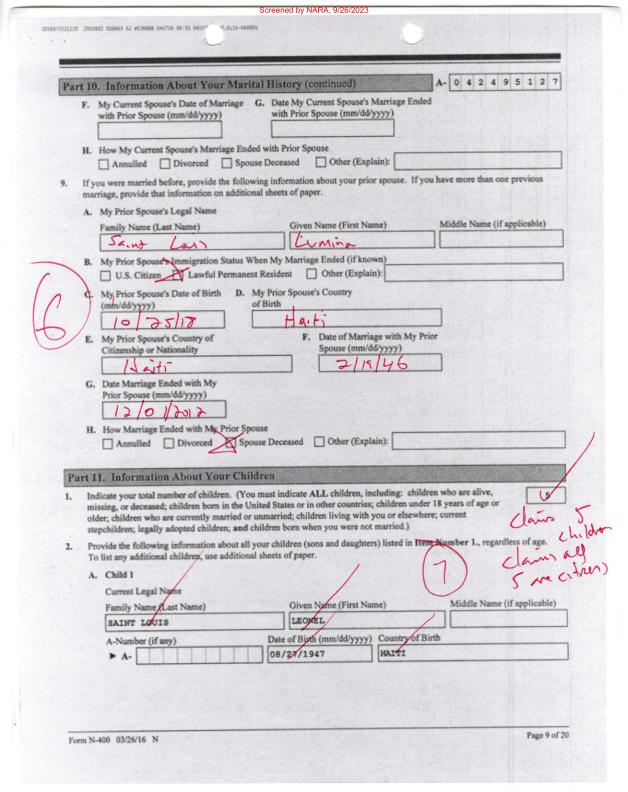 Screened by NARA, 9/26/2023
Part 10. Information About Your Marital History (continued) A- 0 4 2 4 9 5 1 2 7
F. My Current Spouse's Date of Marriage with Prior Spouse (mm/dd/yyyy)
G. Date My Current Spouse's Marriage Ended with Prior Spouse (mm/dd/yyyy)
H. How My Current Spouse's Marriage Ended with Prior Spouse
Annulled Divorced Spouse Deceased Other (Explain):
9. If you were married before, provide the following information about your prior spouse. If you have more than one previous
marriage, provide that information on additional sheets of paper.
A. My Prior Spouse's Legal Name
Family Name (Last Name) Given Name (First Name) Middle Name (if applicable)
Saint Louis
B. My Prior Spouse's Immigration Status When My Marriage Ended (if known)
U.S. Citizen Lawful Permanent Resident Other (Explain):
6
C. My Prior Spouse's Date of Birth (mm/dd/yyyy)
10/25/18
D. My Prior Spouse's Country of Birth
Haiti
E. My Prior Spouse's Country of Citizenship or Nationality
Haiti
F. Date of Marriage with My Prior Spouse (mm/dd/yyyy)
2/19/46
G. Date Marriage Ended with My Prior Spouse (mm/dd/yyyy)
12/01/2012
H. How Marriage Ended with My Prior Spouse
Annulled Divorced Spouse Deceased Other (Explain):
Part 11. Information About Your Children
1. Indicate your total number of children. (You must indicate ALL children, including: children who are alive,
missing, or deceased; children born in the United States or in other countries; children under 18 years of age or
older; children who are currently married or unmarried; children living with you or elsewhere; current
stepchildren; legally adopted children; and children born when you were not married.)
5
claims 5
children
claims all
5 are citizens
2. Provide the following information about all your children (sons and daughters) listed in Item Number 1., regardless of age.
To list any additional children, use additional sheets of paper.
7
A. Child 1
Current Legal Name
Family Name (Last Name) Given Name (First Name) Middle Name (if applicable)
SAINT LOUIS LEONEL
A-Number (if any) Date of Birth (mm/dd/yyyy) Country of Birth
► A- 08/27/1947 HAITI
Form N-400 03/26/16 N Page 9 of 20